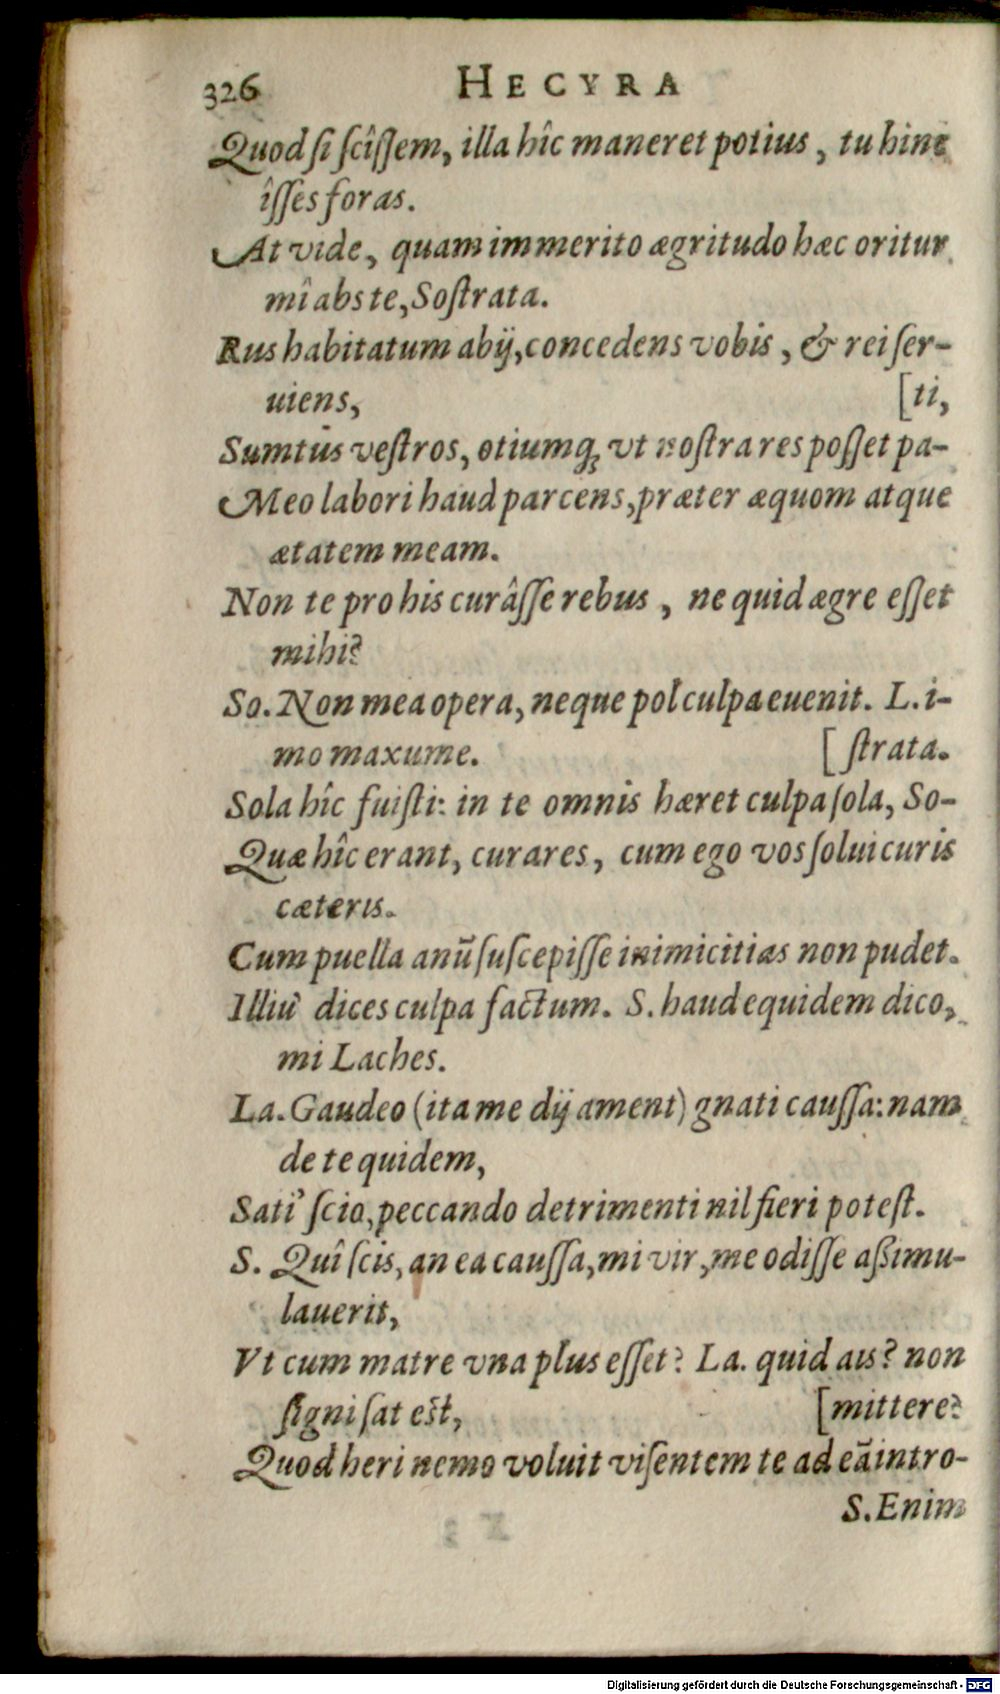 326 HECYRA
Quod ſi ſciſſem, illa hîc maneret potius, tu hinc
îſſes foras.
At vide, quam immerito ægritudo hæc oritur
mî abs te, Soſtrata.
Rus habitatum abij, concedens vobis, & rei ſer-
uiens, [ti,
Sumtus veſtros, otiumq; vt noſtra res poſſet pa-
Meo labori haud parcens, præter æquom atque
ætatem meam.
Non te pro his curâſſe rebus, ne quid ægre eſſet
mihi?
So. Non mea opera, neque pol culpa euenit. L. i-
mo maxume. [ſtrata.
Sola hîc fuiſti: in te omnis hæret culpa ſola, So-
Quæ hîc erant, curares, cum ego vos ſolui curis
cæteris.
Cum puella anū ſuſcepiſſe inimicitias non pudet.
Illiu' dices culpa factum. S. haud equidem dico,
mi Laches.
La. Gaudeo (ita me dij ament) gnati cauſſa: nam
de te quidem,
Sati' ſcio, peccando detrimenti nil fieri poteſt.
S. Quî ſcis, an ea cauſſa, mi vir, me odiſſe aßimu-
lauerit,
Vt cum matre vna plus eſſet? La. quid ais? non
ſigni ſat eſt, [mittere?
Quod heri nemo voluit viſentem te ad eā intro-
S. Enim
Digitalisierung gefördert durch die Deutsche Forschungsgemeinschaft - DFG